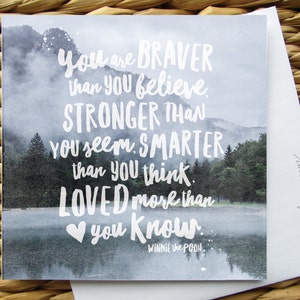 You are BRAVER
than you believe,
STRONGER THAN
you seem, SMARTER
than you think,
LOVED more than
you know.
WINNIE THE POOH